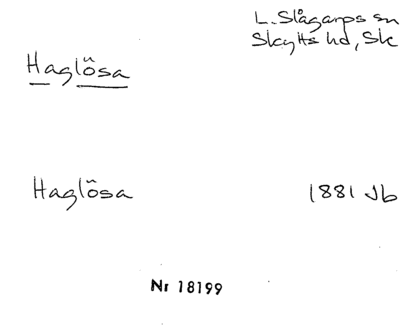 L. Slågarps sn
Skytts hd, Sk
Haglösa
Haglösa 1881 Jb
Nr 18199